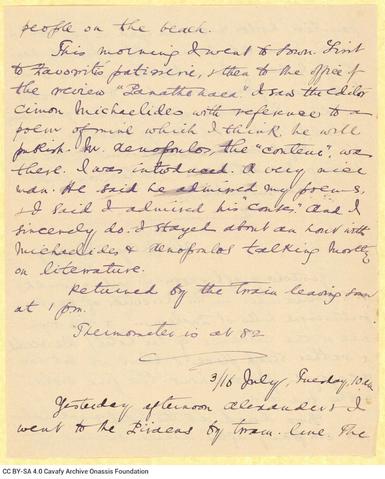 people on the beach.
This morning I went to town. First
to Zavoritis patisserie, & then to the office of
the review "Panathenaea". I saw the editor
Cimon Michaelides with reference to a
poem of mine which I think he will
publish. Mr. Xenopoulos, the "conteur", was
there. I was introduced. A very nice
man. He said he admired my poems,
& I said I admired his "contes" and I
sincerely do. I stayed about an hour with
Michaelides & Xenopoulos talking mostly
on literature.
Returned by the train leaving town
at 1 p.m.
Thermometer is at 82
3/16 July, Tuesday, 10 a.m.
Yesterday afternoon Alexander & I
went to the Piraeus by train. line. The
CC BY-SA 4.0 Cavafy Archive Onassis Foundation